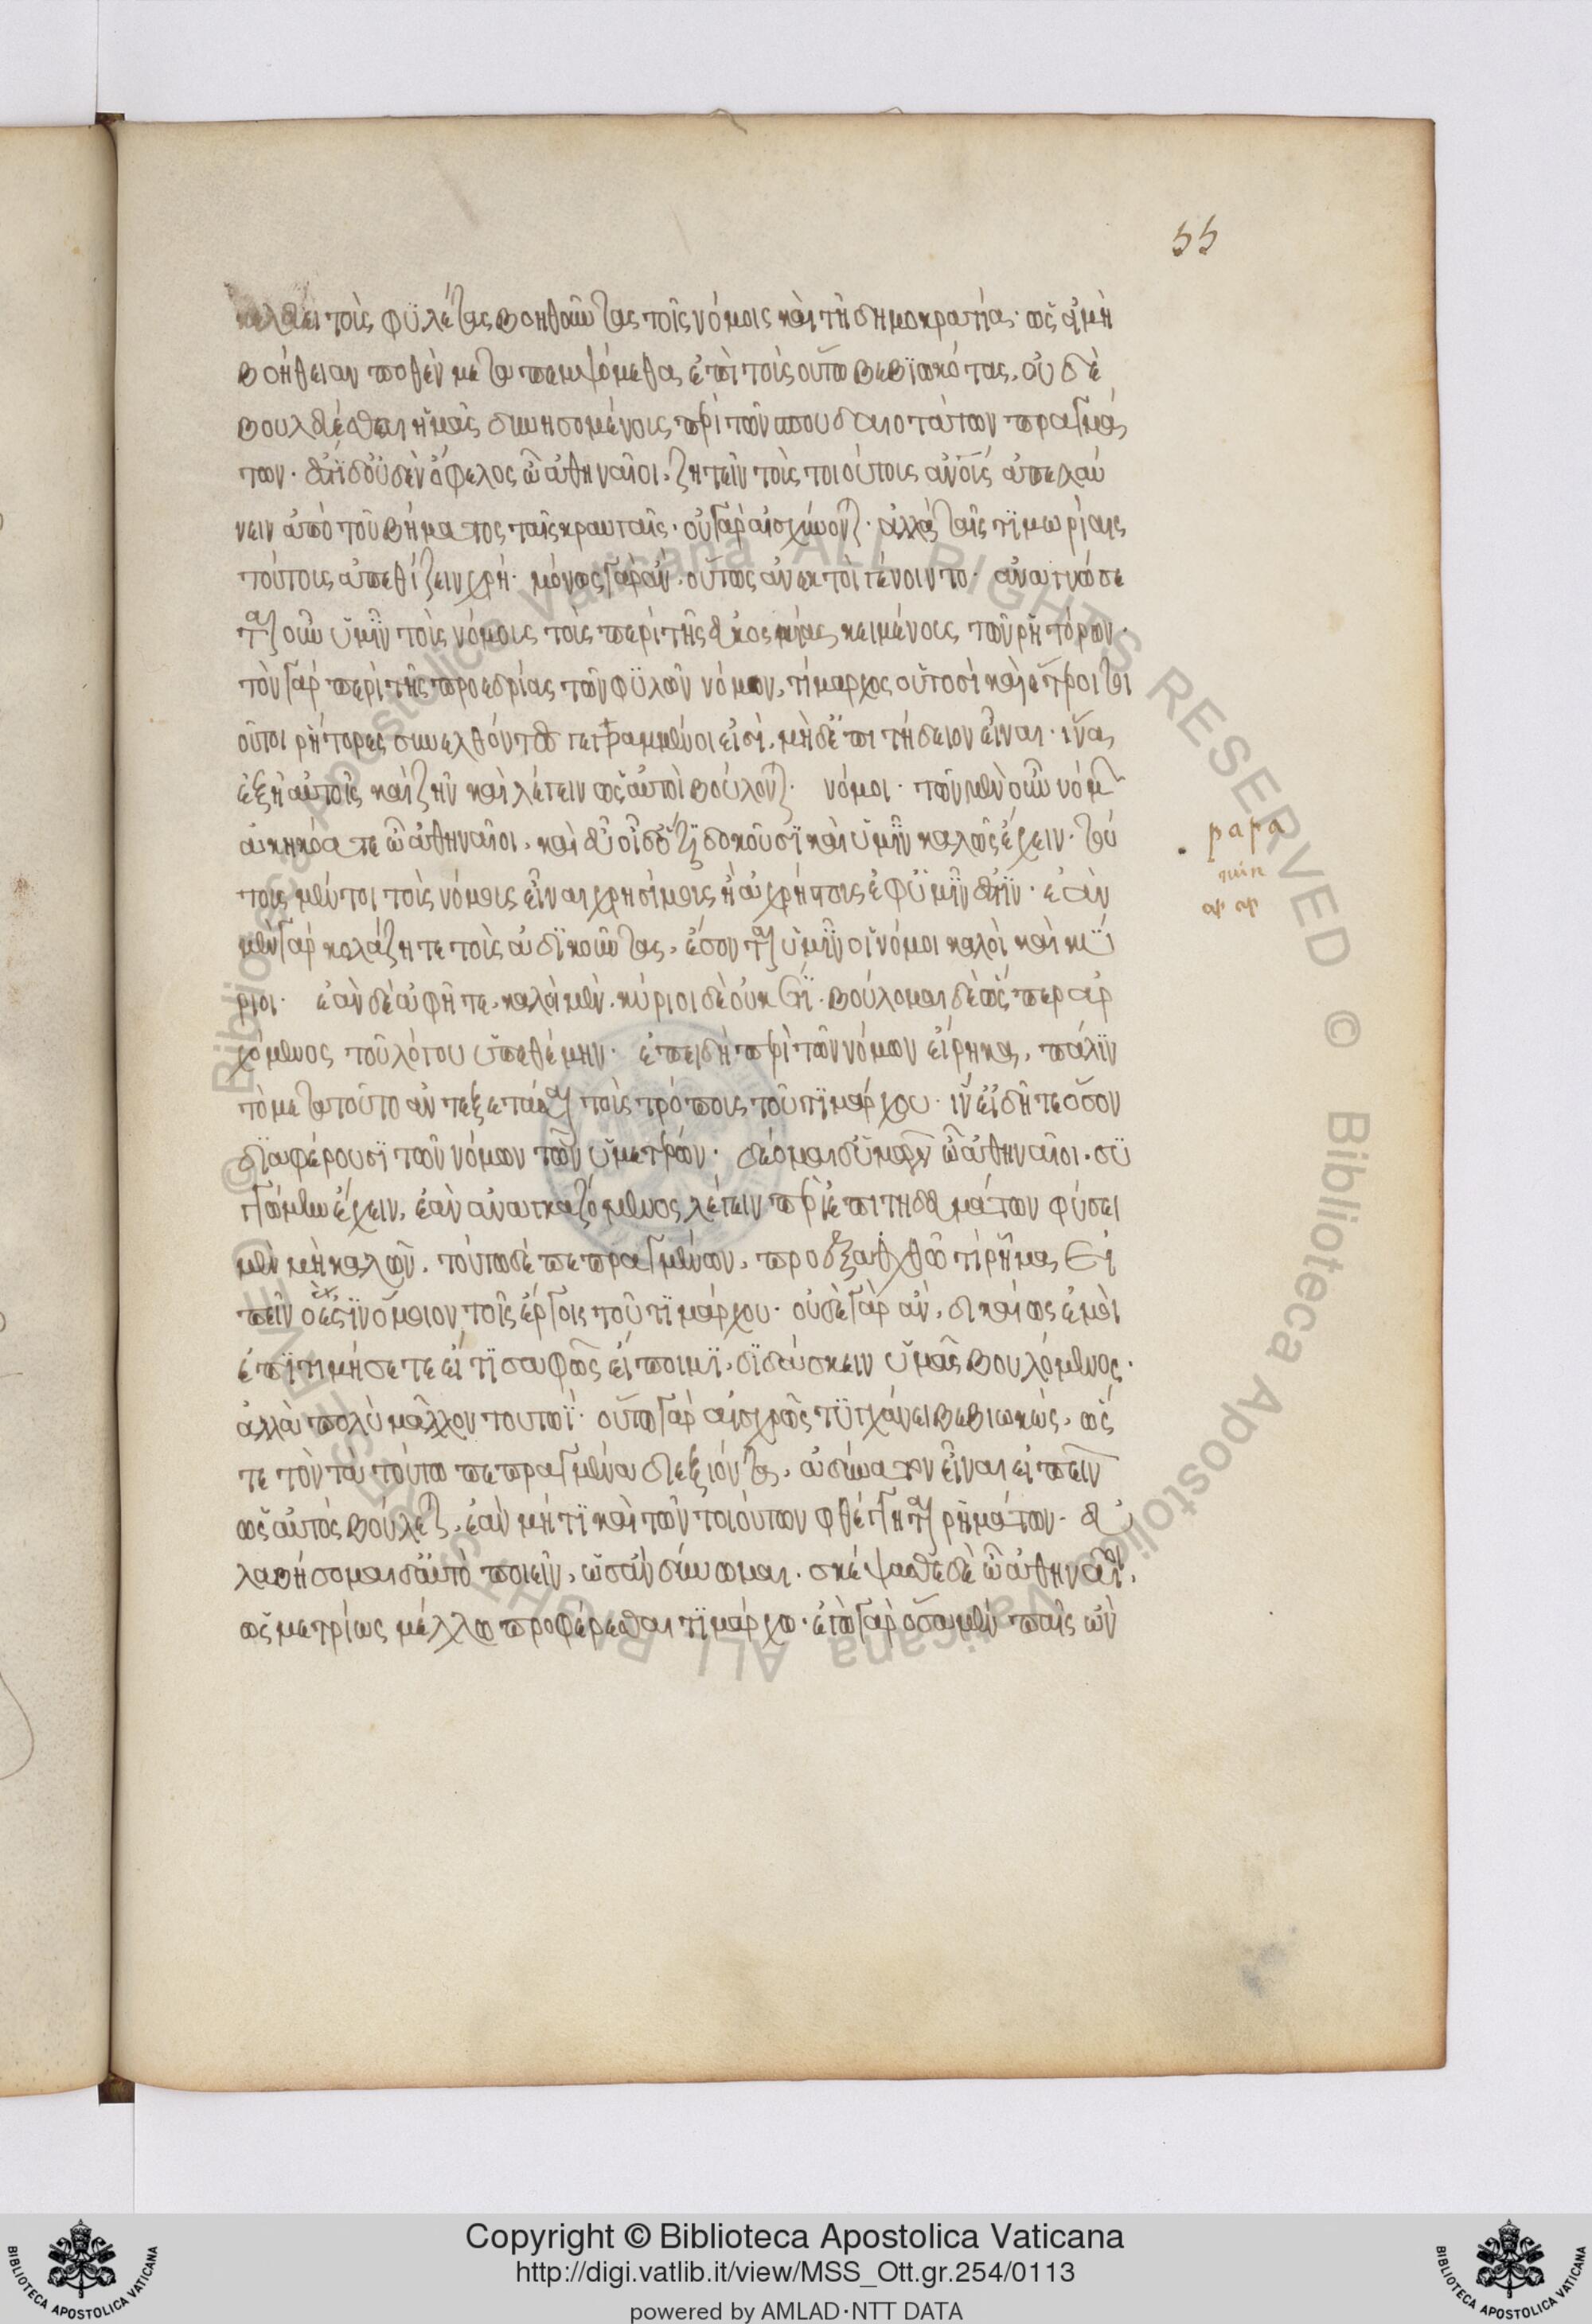 55
κελεύει τοὺς φυλέτας βοηθοῦντας τοῖς νόμοις καὶ τῇ δημοκρατίᾳ· ὡς εἰ μὴ
βοήθειαν ποθὲν μεταπεμψόμεθα ἐπὶ τοὺς οὕτω βεβϊωκότας, οὐδὲ
βουλεύεσθαι ἡμᾶς δυνησομένους περὶ τῶν σπουδαιοτάτων πραγμά
των· ἔστϊ δ οὐδὲν ὄφελος ὦ ἀθηναῖοι, ζητεῖν τοὺς τοιούτους ἀνους ἀπελαύ
νειν ἀπὸ τοῦ βήματος ταῖς κραυγαῖς· οὐ γὰρ αἰσχύνονται· ἀλλὰ ταῖς τϊμωρίαις
τούτους ἀπεθίζειν χρή· μόνως γὰρ ἂν, οὕτως ἀνεκτοὶ γένοιντο· ἀναγνώσε
ται οὖν ὑμῖν τοὺς νόμους τοὺς περὶ τῆς εὐκοσμίας κειμένους τῶν ῥητόρων·
τὸν γὰρ περὶ τῆς προεδρίας τῶν φϋλῶν νόμον, τίμαρχος οὑτοσὶ καὶ ἕτεροι τοι
οῦτοι ῥήτορες συνελθόντες γεγραμμένοι εἰσὶ, μὴ δἐπιτήδειον εἶναι· ἵνα
ἐξῇ αὐτοῖς καὶ ζῆν καὶ λέγειν ὡς αὐτοὶ βούλονται· νόμοι· τῶν μὲν οὖν νόμ
ἀκηκόατε ὦ ἀθηναῖοι, καὶ εὖ οἶδ ὅτϊ δοκοῦσϊ καὶ ὑμῖν καλῶς ἔχειν· τού
τους μέντοι τοὺς νόμους εἶναι χρησίμους ἢ ἀχρήστους ἐφ ὑμῖν ἐστϊν· ἐὰν
μὲν γὰρ κολάζητε τοὺς ἀδϊκοῦντας, ἔσονται ὑμῖν οἱ νόμοι καλοὶ καὶ κύ
ριοι· ἐὰν δὲ ἀφῆτε, καλὰ μὲν, κύριοι δὲ οὐκέτϊ· βούλομαι δὲ ὥσπερ ἀρ
χόμενος τοῦ λόγου ὑπεθέμην· ἐπειδὴ περὶ τῶν νόμων εἴρηκα, πάλϊν
τὸ μετὰ τοῦτο ἀντεξετάσαι τοὺς τρόπους τοῦ τϊμάρχου· ἵν εἰδῆτε ὅσον
δϊαφέρουσϊ τῶν νόμων τῶν ὑμετέρων· δέομαι δ ὑμῶν ὦ ἀθηναῖοι, σϋ
γγνώμην ἔχειν, ἐὰν ἀναγκαζόμενος λέγειν περὶ ἐπιτηδευμάτων φύσει
μὲν μὴ καλῶν, τούτω δὲ πεπραγμένων, προ εξαχθῶ τὶ ῥῆμα εἰ
πεῖν ὅ ἐστϊν ὅμοιον τοῖς ἔργοις τοῦ τϊμάρχου· οὐδὲ γὰρ ἂν, δικαίως ἐμοὶ
ἐπϊτιμήσετε εἴ τϊ σαφῶς εἴποιμϊ, δϊδάσκειν ὑμᾶς βουλόμενος·
ἀλλὰ πολὺ μᾶλλον τουτωΐ· οὕτω γὰρ αἰσχρῶς τϋγχάνει βεβιωκὼς, ὥς
τε τὸν τὰ τούτω πεπραγμένα διεξιόντα, ἀδύνατον εἶναι εἰπεῖν
ὡς αὐτὸς βούλεται, ἐὰν μή τϊ καὶ τῶν τοιούτων φθέγγηται ῥημάτων· εὐ
λαβήσομαι δ αὐτὸ ποιεῖν, ὡς ἂν δύνωμαι· σκέψασθε δὲ ὦ ἀθηναῖοι,
ὡς μετρίως μέλλω προφέρεσθαι τϊμάρχω· ἐγὼ γὰρ ὅσα μὲν παῖς ὢν
papa
Copyright © Biblioteca Apostolica Vaticana
http://digi.vatlib.it/view/MSS_Ott.gr.254/0113
powered by AMLAD·NTT DATA